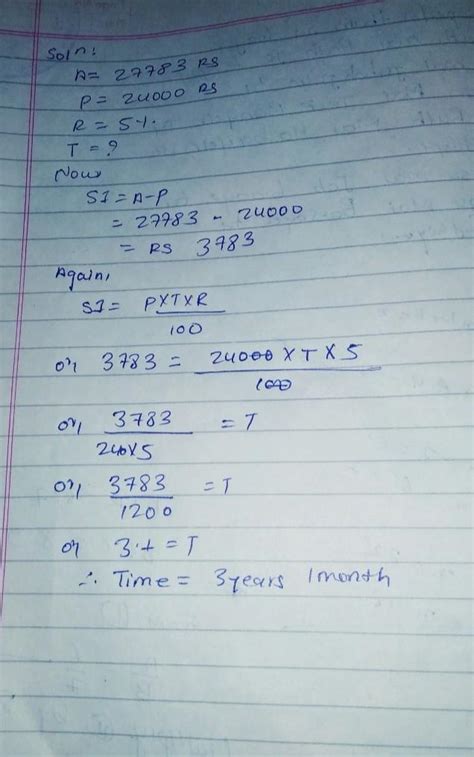 Soln:
A= 27783 RS
P= 24000 RS
R = 5%.
T = ?
Now
SI = A-P
= 27783 - 24000
= RS 3783
Again,
SI= PXTXR
100
or, 3783 = 24000 X T X 5
100
or, 3783 = T
240X5
or, 3783 = T
1200
or 3.1 = T
∴ Time = 3 years 1 month